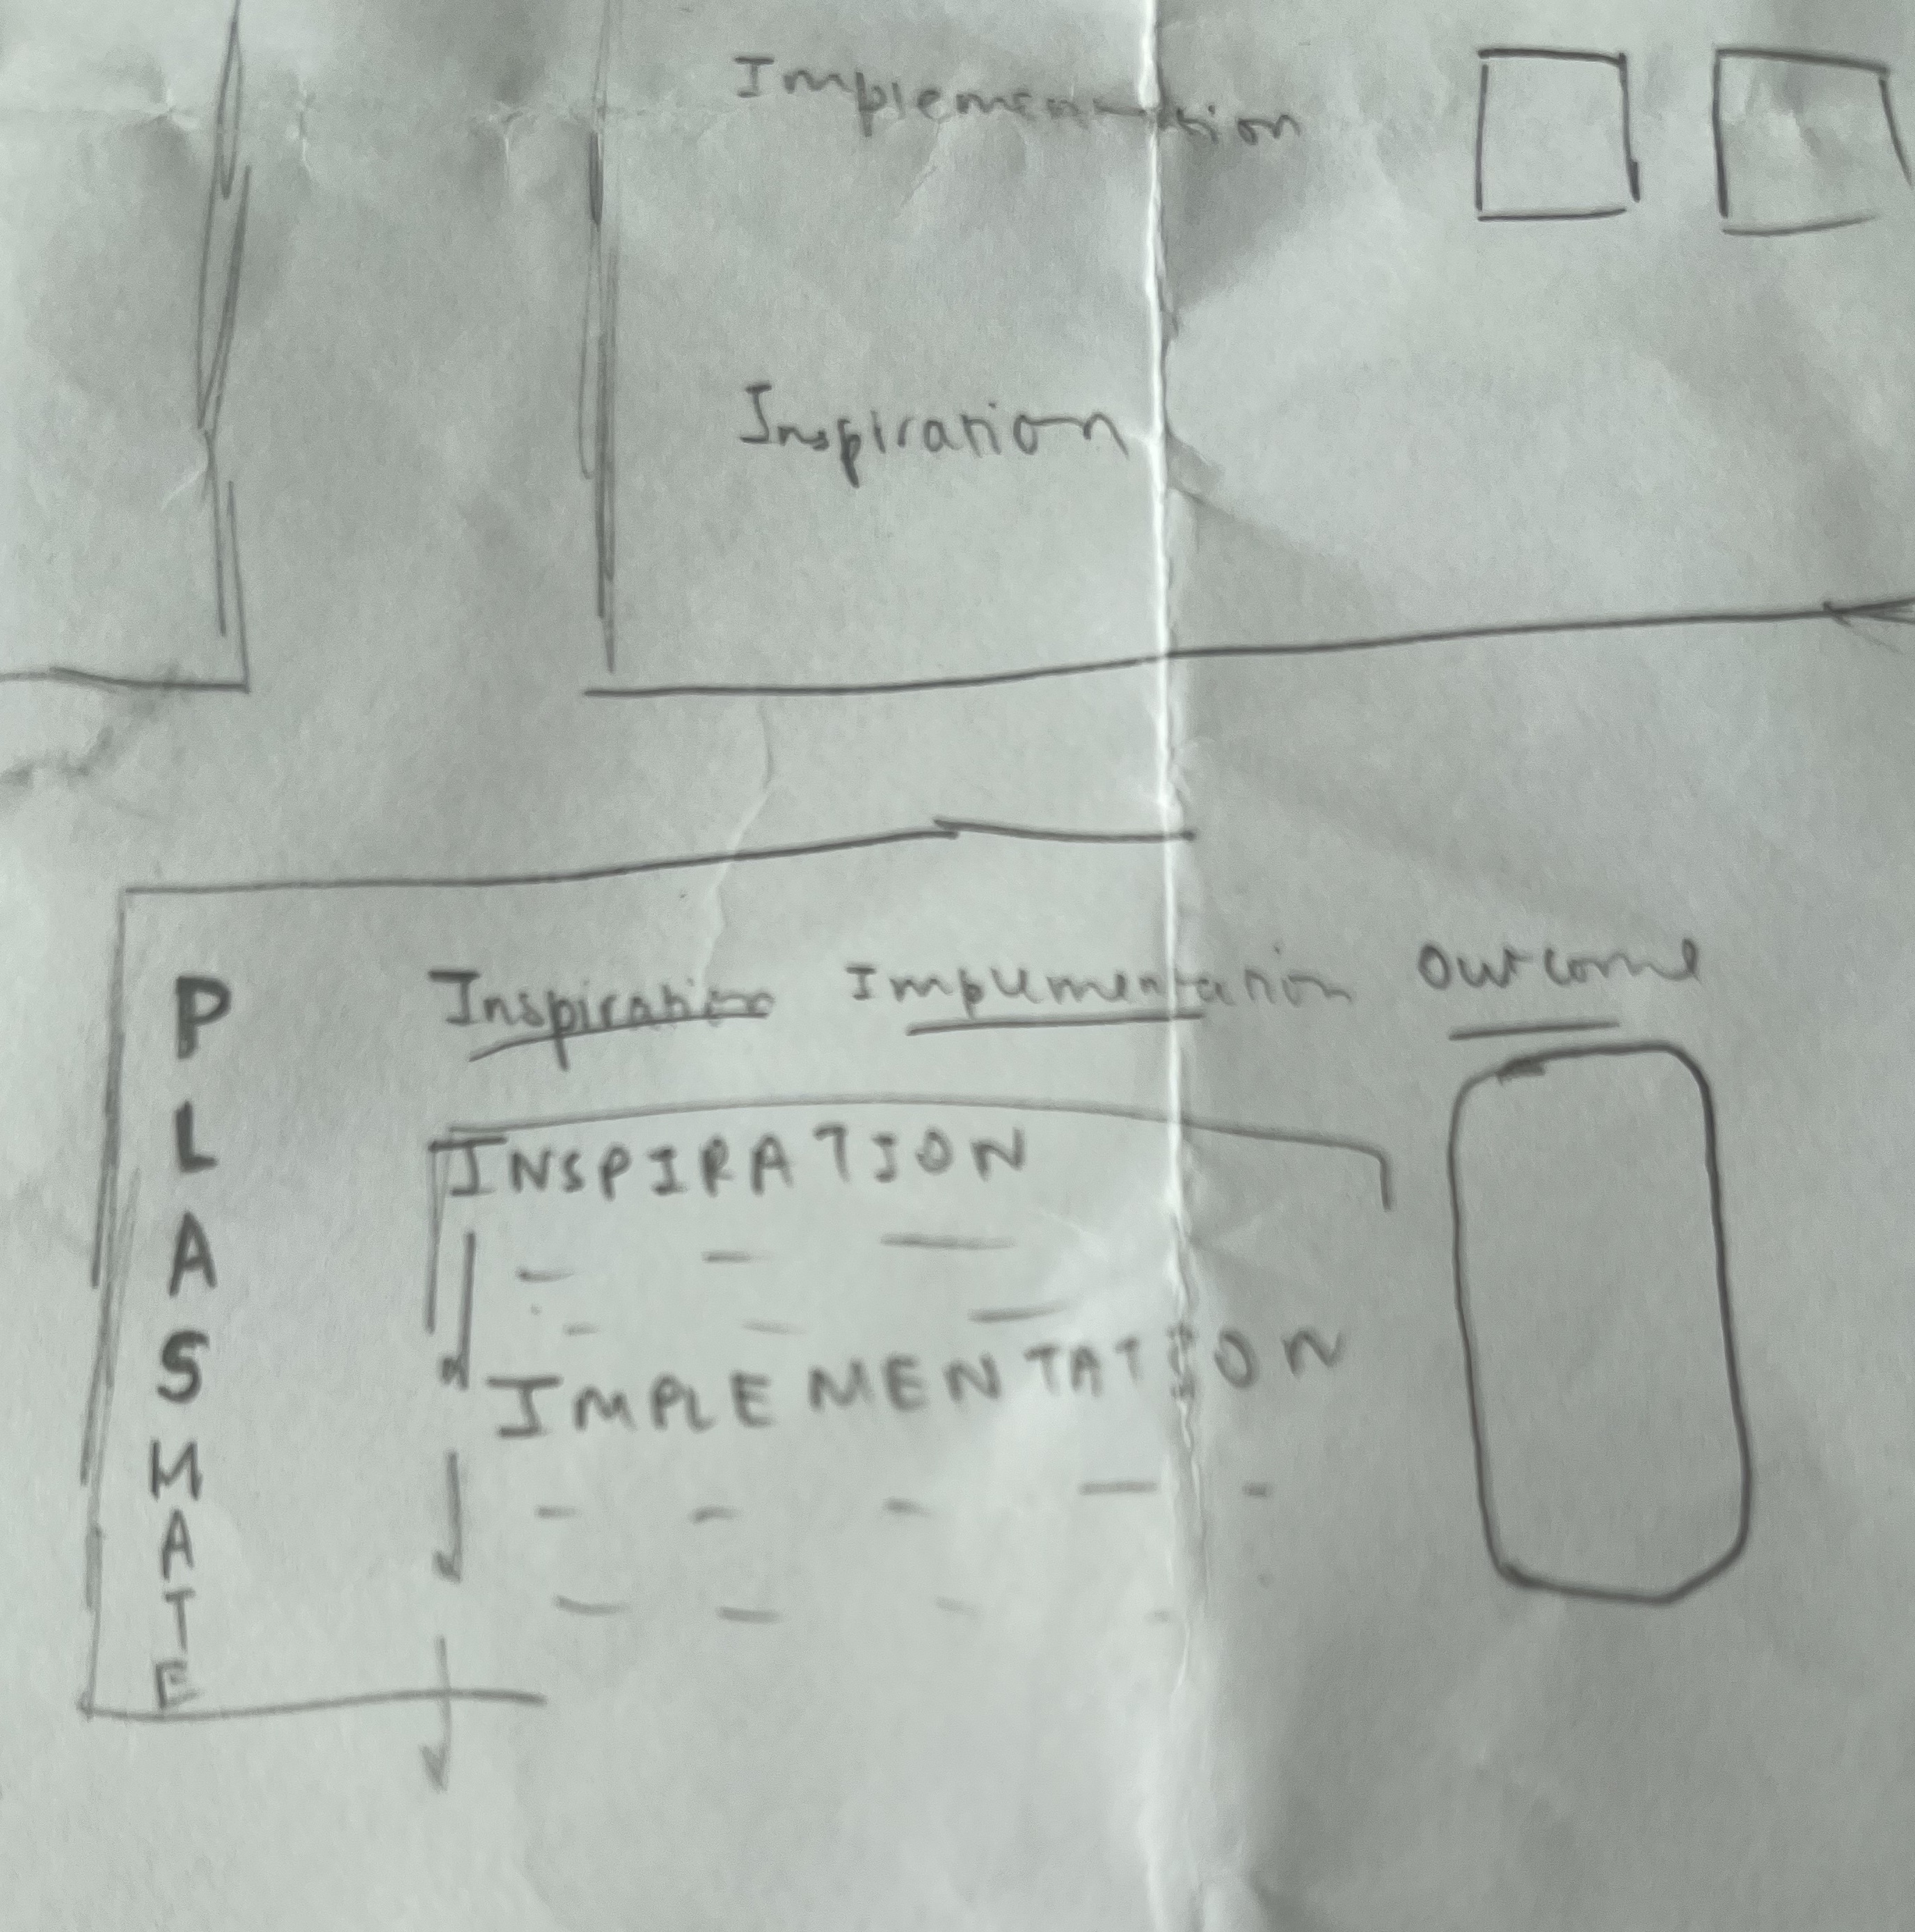 Implementation
Inspiration
PLASMATE
Inspiration Implementation Outcome
INSPIRATION
IMPLEMENTATION